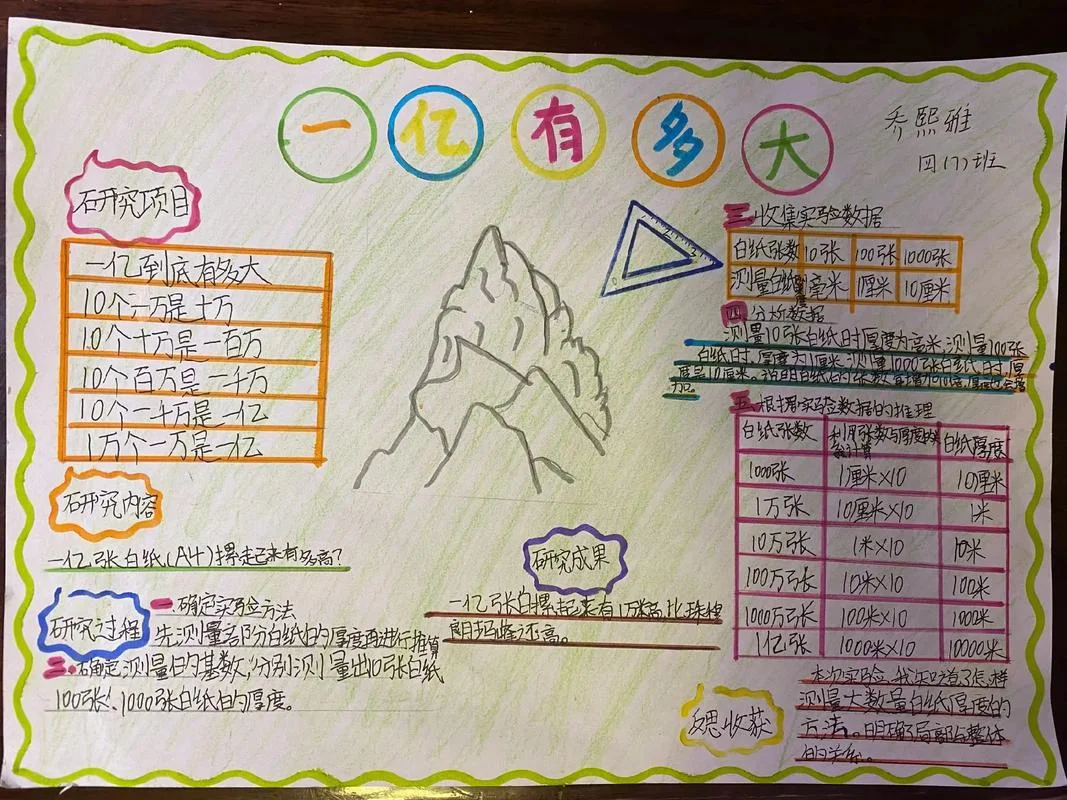 一亿有多大
乔熙雅
四(7)班
研究项目
一亿到底有多大
10个一万是十万
10个十万是一百万
10个百万是一千万
10个一千万是一亿
1万个一万是一亿
研究内容
一亿张白纸(A4)摞起来有多高?
研究过程
一.确定实验方法
先测量部分白纸的厚度再进行推算
二.确定测量的基数,分别测量出10张白纸
100张、1000张白纸的厚度。
研究成果
一亿张白摞起来有1万米高,比珠穆
朗玛峰还高。
三.收集实验数据
白纸张数 10张 100张 1000张
测量白纸厚度 1毫米 1厘米 10厘米
四.分析数据
测量10张白纸时厚度为毫米,测量100张
白纸时,厚度为1厘米,测量1000张白纸时,厚
度是10厘米,说明白纸的张数
加。
五.根据实验数据的推理
白纸张数 利用张数与厚度的 白纸厚度
1000张 1厘米×10 10厘米
1万张 10厘米×10 1米
10万张 1米×10 10米
100万张 10米×10 100米
1000万张 100米×10 1000米
1亿张 1000米×10 10000米
反思收获
本次实验,我知道了怎样
测量大数量白纸厚度的
方法。明确了局部与整体
的关系。